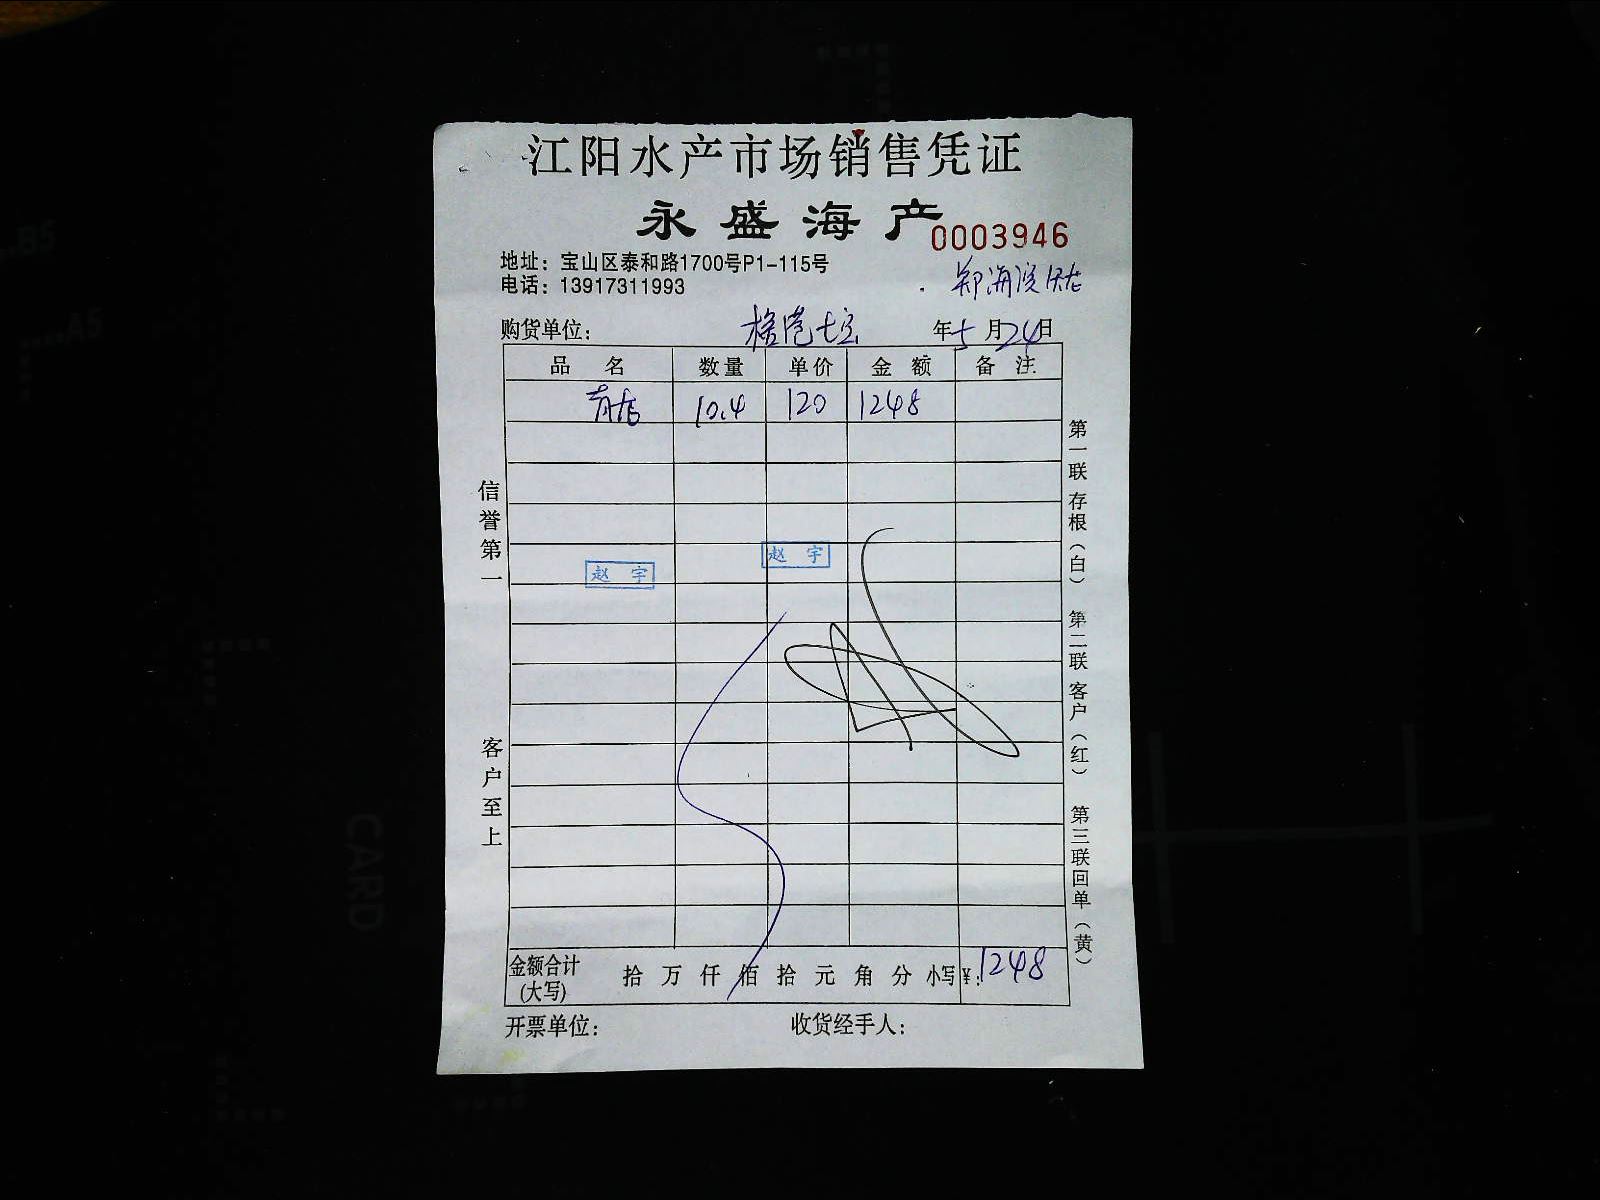 江阳水产市场销售凭证
永盛海产 0003946
地址：宝山区泰和路1700号P1-115号
电话：13917311993
购货单位： 年5月24日
品名 数量 单价 金额 备注
10.4 120 1248
赵宇
赵宇
信誉第一
客户至上
第一联存根（白） 第二联客户（红） 第三联回单（黄）
金额合计(大写) 拾万仟佰拾元角分 小写¥：1248
开票单位： 收货经手人：
CARD
B5
A5